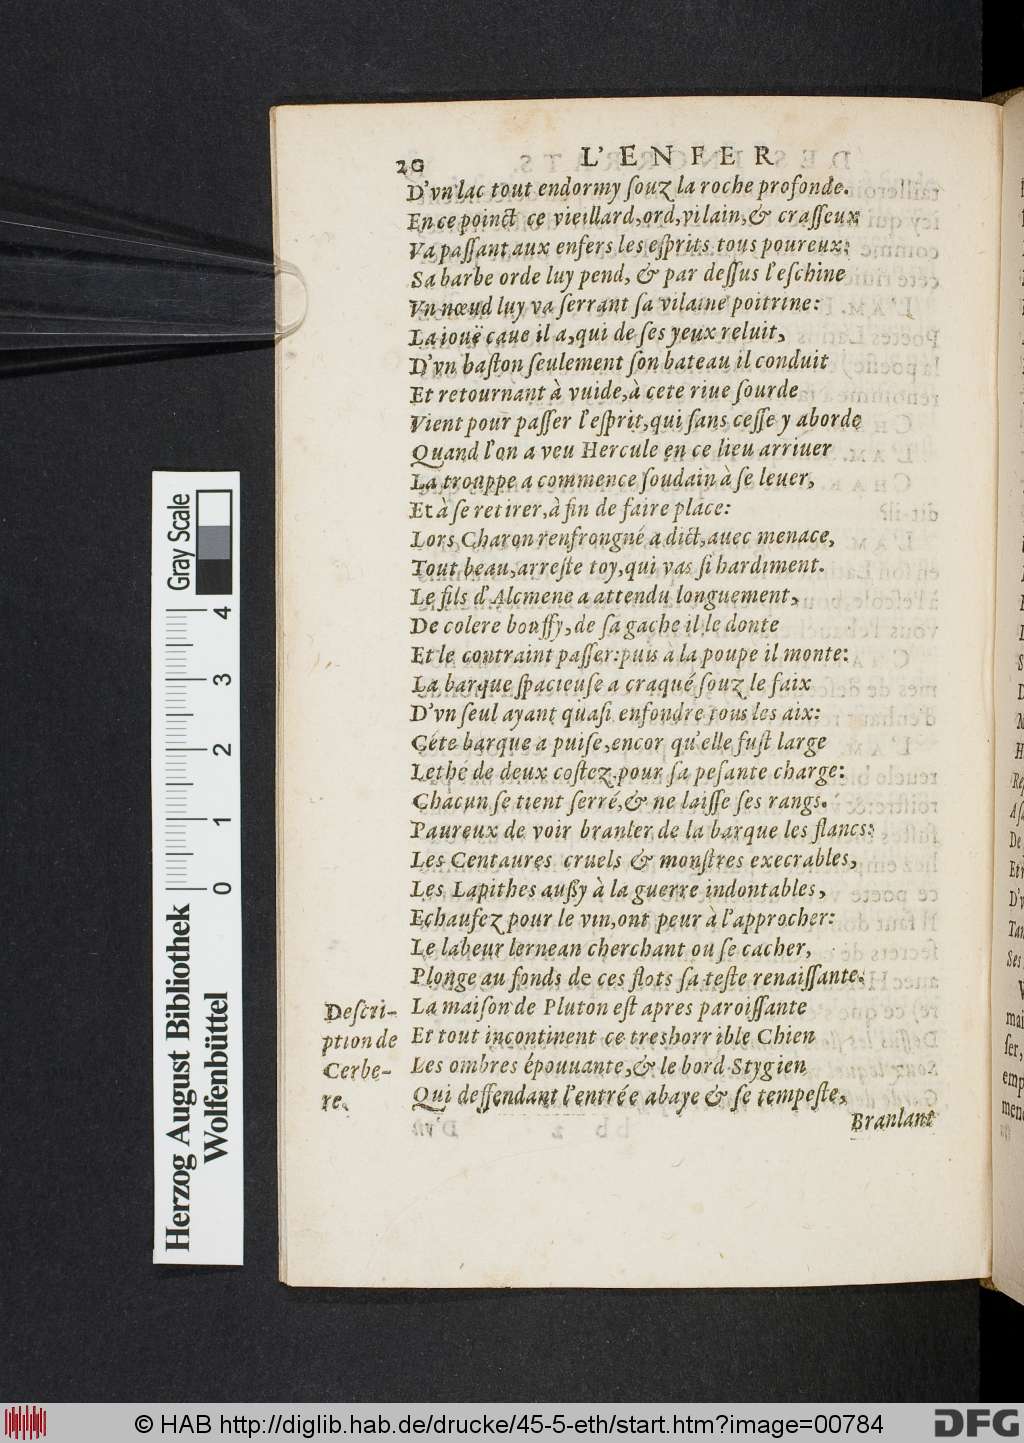 20 L'ENFER
D'vn lac tout endormy ſouz la roche profonde.
En ce poinct ce vieillard, ord, vilain, & craſſeux
Va paſſant aux enfers les eſprits tous poureux:
Sa barbe orde luy pend, & par deſſus l'eſchine
Vn nœud luy va ſerrant ſa vilaine poitrine:
La iouë caue il a, qui de ſes yeux reluit,
D'vn baſton ſeulement ſon bateau il conduit
Et retournant à vuide, à cete riue ſourde
Vient pour paſſer l'eſprit, qui ſans ceſſe y aborde
Quand l'on a veu Hercule en ce lieu arriuer
La trouppe a commence ſoudain à ſe leuer,
Et à ſe retirer, à fin de faire place:
Lors Charon renfrongné a dict, auec menace,
Tout beau, arreſte toy, qui vas ſi hardiment.
Le fils d'Alcmene a attendu longuement,
De colere bouffy, de ſa gache il le donte
Et le contraint paſſer: puis a la poupe il monte:
La barque ſpacieuſe a craqué ſouz le faix
D'vn ſeul ayant quaſi enfondre tous les aix:
Céte barque a puiſe, encor qu'elle fuſt large
Lethé de deux coſtez pour ſa peſante charge:
Chacun ſe tient ſerré, & ne laiſſe ſes rangs.
Paureux de voir branler de la barque les flancs:
Les Centaures cruels & monſtres execrables,
Les Lapithes auſſy à la guerre indontables,
Echaufez pour le vin, ont peur à l'approcher:
Le labeur lernean cherchant ou ſe cacher,
Plonge au fonds de ces flots ſa teſte renaiſſante.
La maiſon de Pluton eſt apres paroiſſante
Et tout incontinent ce treshorrible Chien
Les ombres épouuante, & le bord Stygien
Qui deffendant l'entrée abaye & ſe tempeſte,
Branlant
Deſcri-
ption de
Cerbe-
re.
Herzog August Bibliothek
Wolfenbüttel
0 1 2 3 4
Gray Scale
© HAB http://diglib.hab.de/drucke/45-5-eth/start.htm?image=00784
DFG